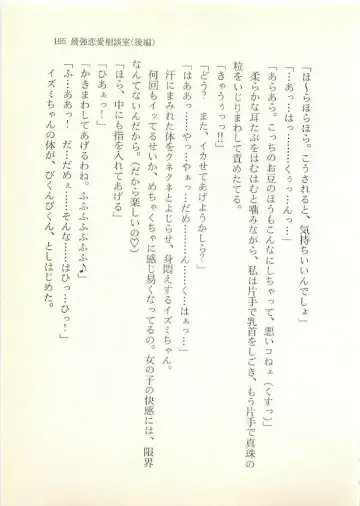 195 最強恋愛相談室(後編)
「ほ〜らほらほら。こうされると、気持ちいいんでしょ」
「…あっ…はっ………くぅっ…んっ…」
「あらあら。こっちのお豆のほうもこんなにしちゃって、悪いコねぇ(くすっ)」
柔らかな耳たぶをはむはむと噛みながら、私は片手で乳首をしごき、もう片手で真珠の
粒をいじりまわして責めたてる。
「きゃうぅっっ!!」
「どう? また、イカせてあげようかしら?」
「はああ……やっ…やぁっ…だめ………ん……くはぁっ…」
汗にまみれた体をクネクネとよじらせ、身悶えするイズミちゃん。
何回もイッてるせいか、めちゃくちゃに感じ易くなってるの。女の子の快感には、限界
なんてないんだから。(だから楽しいの♡)
「ほら、中にも指を入れてあげる」
「ひあぁっ!」
「かきまわしてあげるわね。ふふふふふふ♪」
「ふ…ああっ! だ…だめぇ……そんな……はひっ…ひっ!」
イズミちゃんの体が、びくんびくん、としはじめた。